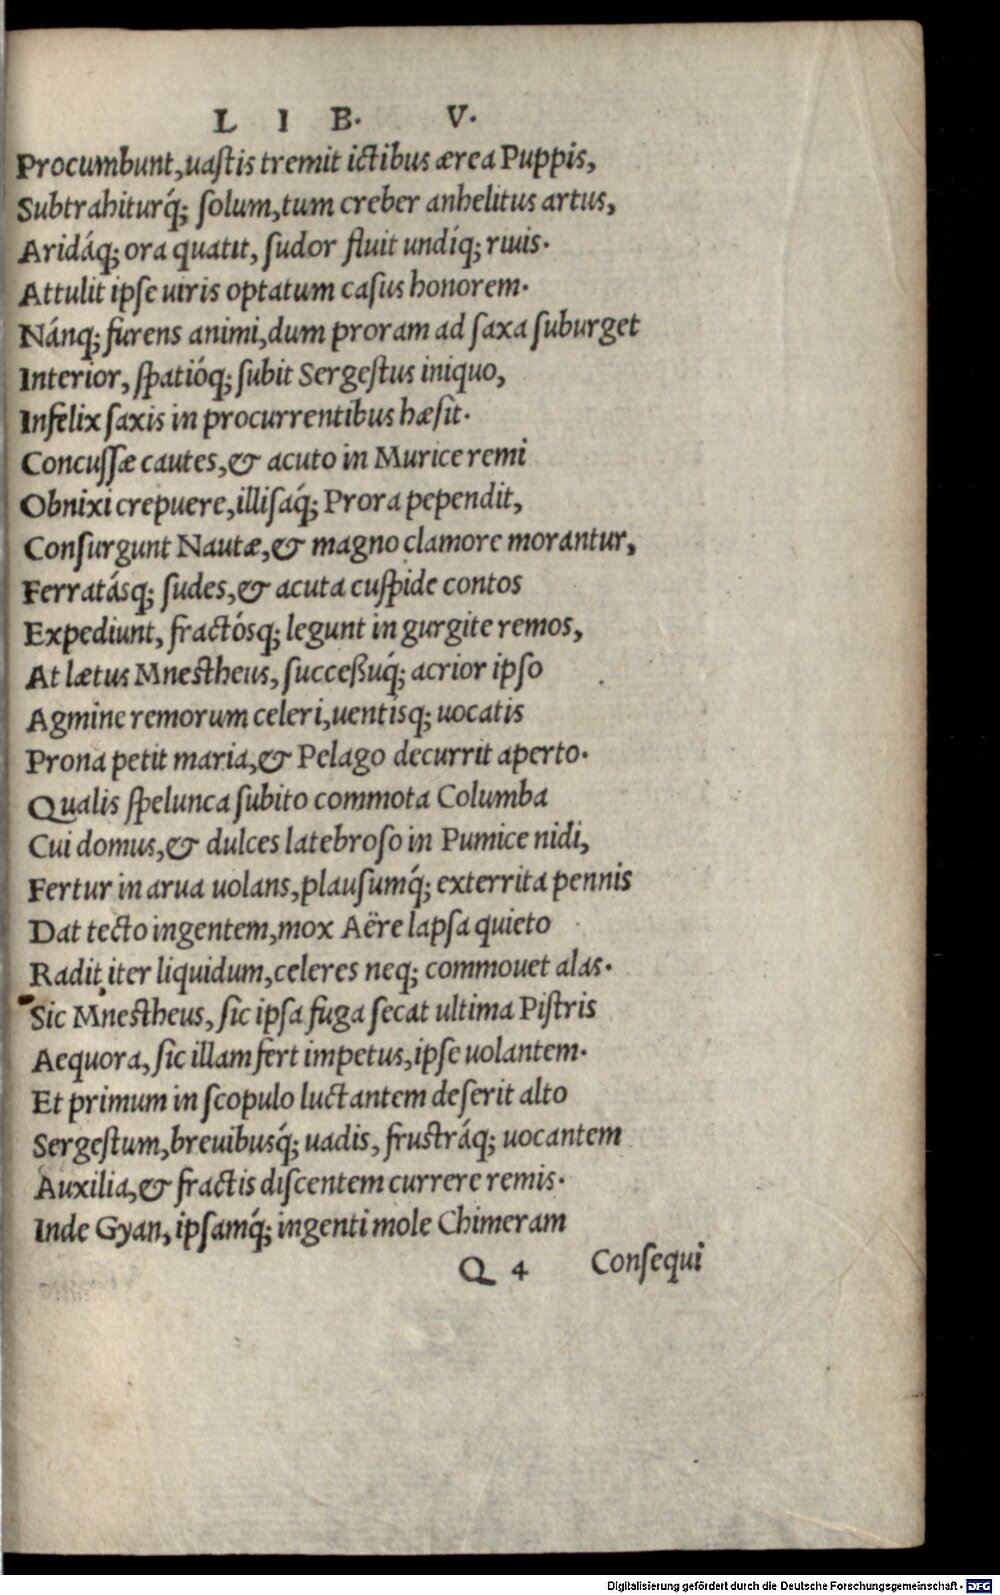 LIB. V.
Procumbunt,uaſtis tremit ictibus ærea Puppis,
Subtrahiturq́; ſolum,tum creber anhelitus artus,
Aridáq; ora quatit, ſudor fluit undíq; riuis.
Attulit ipſe uiris optatum caſus honorem.
Nánq; furens animi,dum proram ad ſaxa ſuburget
Interior, ſpatióq; ſubit Sergeſtus iniquo,
Infelix ſaxis in procurrentibus hæſit.
Concuſſæ cautes,& acuto in Murice remi
Obnixi crepuere,illiſaq́; Prora pependit,
Conſurgunt Nautæ,& magno clamore morantur,
Ferratásq; ſudes,& acuta cuſpide contos
Expediunt, fractósq; legunt in gurgite remos,
At lætus Mneſtheus, ſucceßuq́; acrior ipſo
Agmine remorum celeri,uentisq; uocatis
Prona petit maria,& Pelago decurrit aperto.
Qualis ſpelunca ſubito commota Columba
Cui domus,& dulces latebroſo in Pumice nidi,
Fertur in arua uolans,plauſumq́; exterrita pennis
Dat tecto ingentem,mox Aëre lapſa quieto
Radit iter liquidum,celeres neq; commouet alas.
Sic Mneſtheus, ſic ipſa fuga ſecat ultima Piſtris
Aequora, ſic illam fert impetus,ipſe uolantem.
Et primum in ſcopulo luctantem deſerit alto
Sergeſtum,breuibusq́; uadis, fruſtráq; uocantem
Auxilia,& fractis diſcentem currere remis.
Inde Gyan, ipſamq́; ingenti mole Chimeram
Q 4 Conſequi
Digitalisierung gefördert durch die Deutsche Forschungsgemeinschaft - DFG